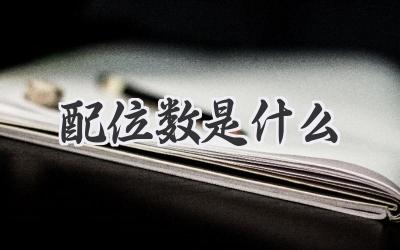 配位数是什么